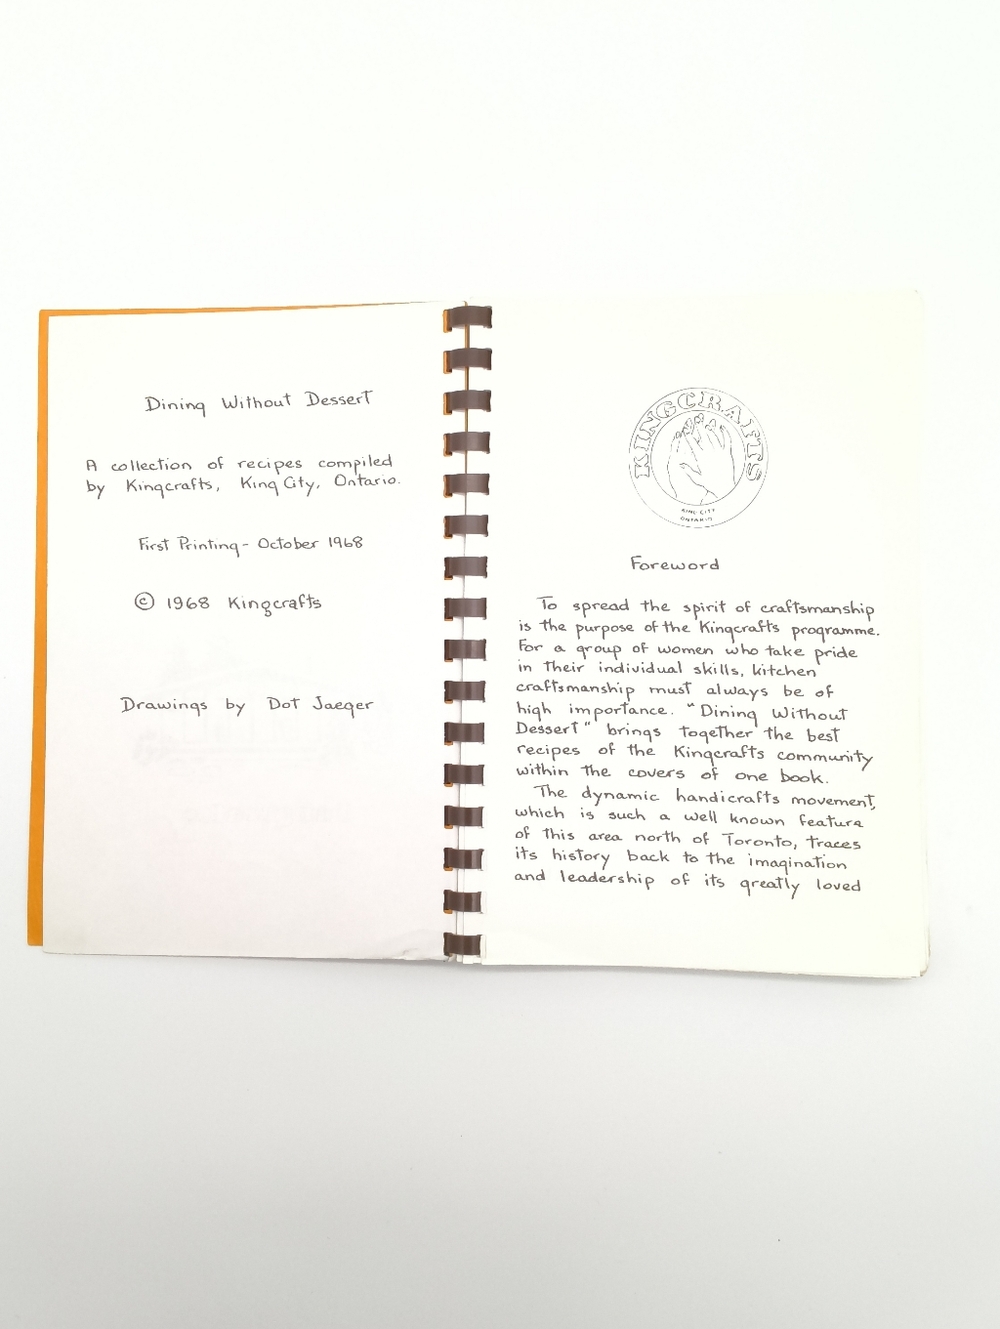 Dining Without Dessert
A collection of recipes compiled
by Kingcrafts, King City, Ontario.
First Printing - October 1968
© 1968 Kingcrafts
Drawings by Dot Jaeger
KINGCRAFTS
KING CITY
ONTARIO
Foreword
To spread the spirit of craftsmanship
is the purpose of the Kingcrafts programme.
For a group of women who take pride
in their individual skills, kitchen
craftsmanship must always be of
high importance. "Dining Without
Dessert" brings together the best
recipes of the Kingcrafts community
within the covers of one book.
The dynamic handicrafts movement,
which is such a well known feature
of this area north of Toronto, traces
its history back to the imagination
and leadership of its greatly loved